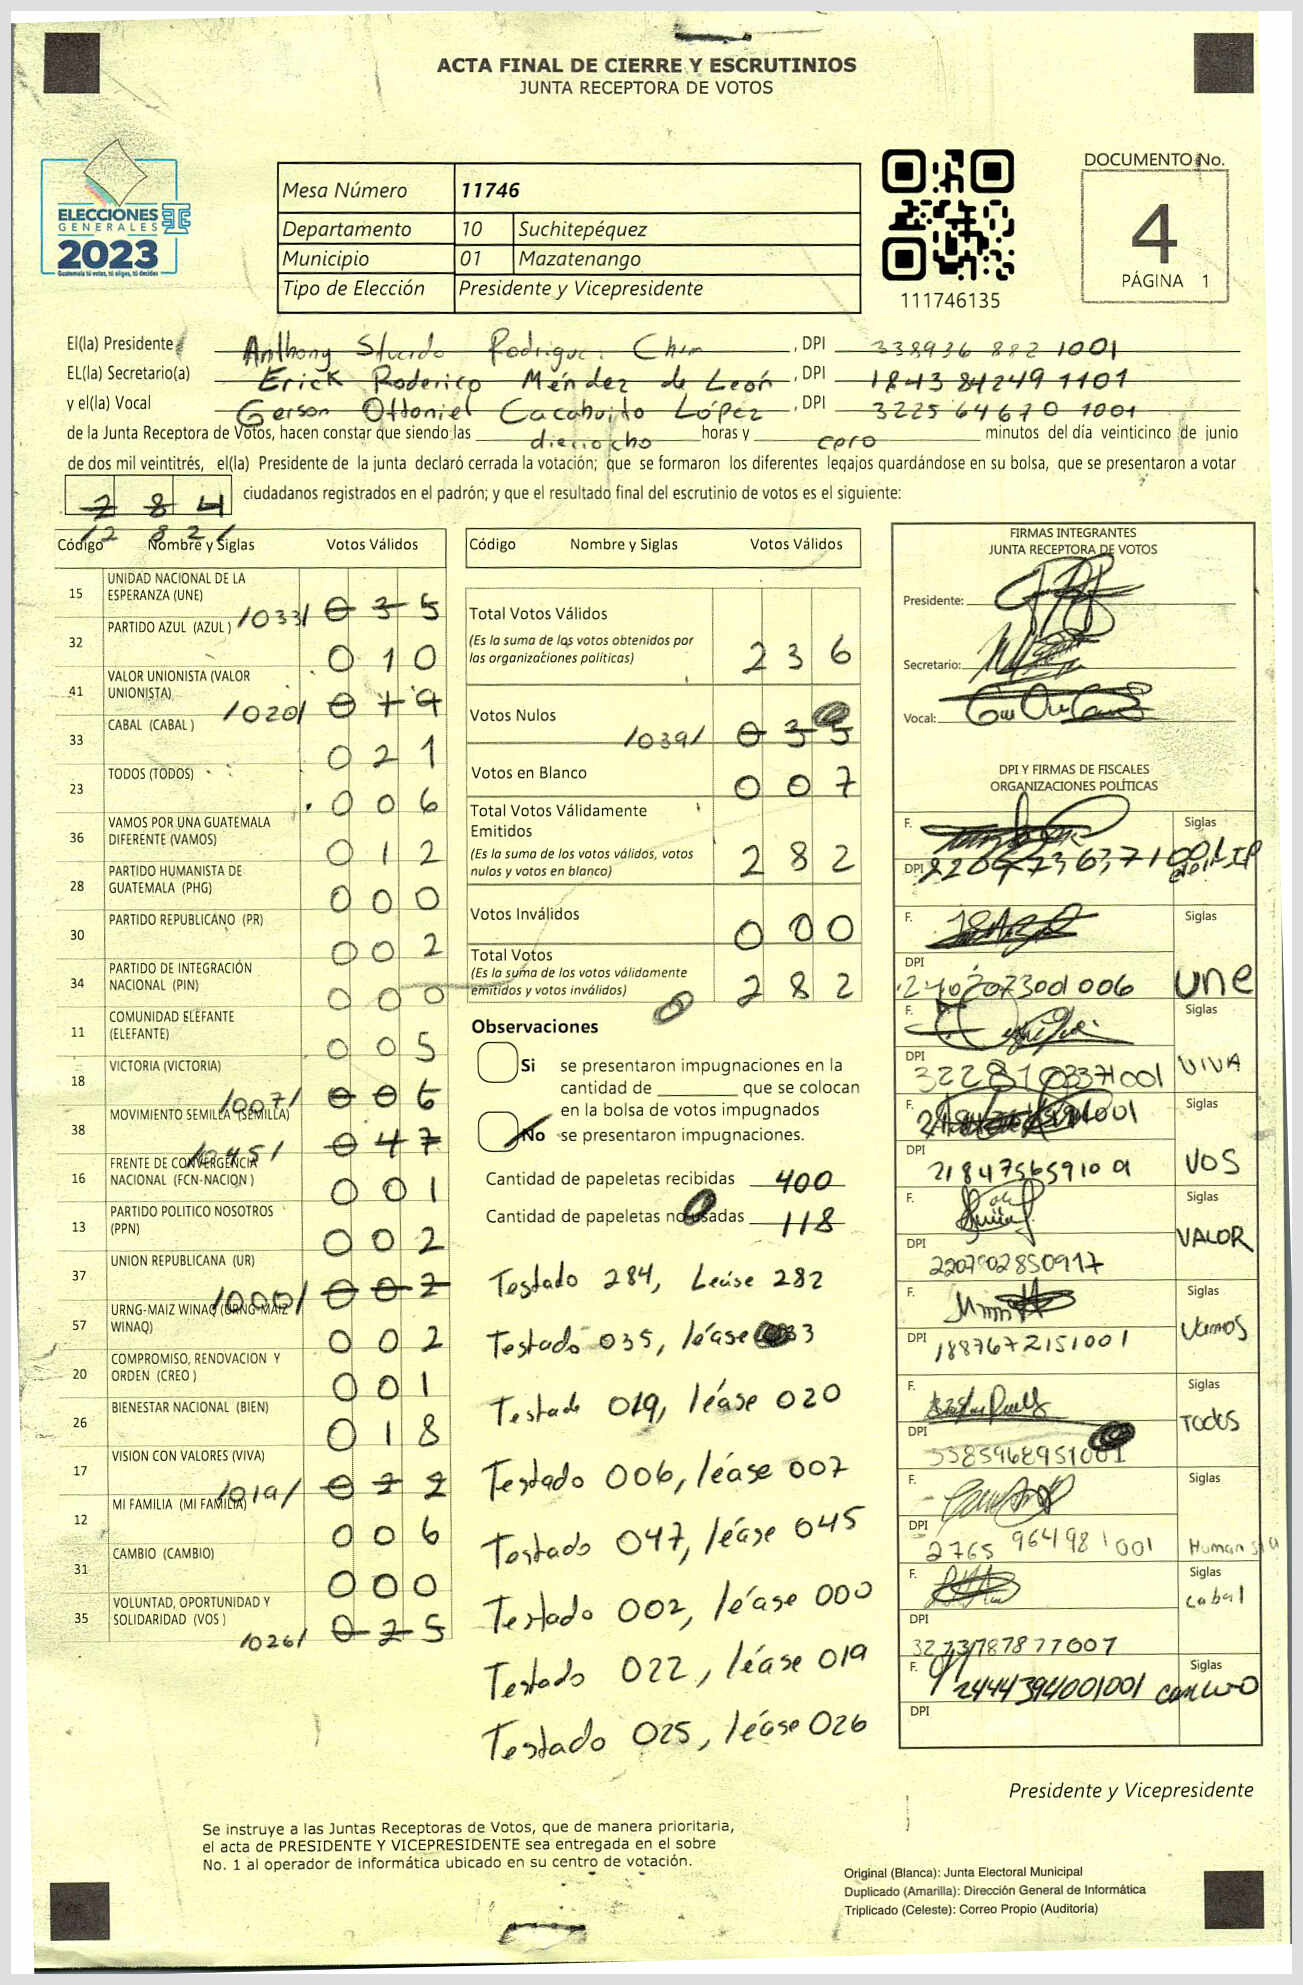 ACTA FINAL DE CIERRE Y ESCRUTINIOS
JUNTA RECEPTORA DE VOTOS
ELECCIONES
GENERALES
2023
Guatemala tú votas, tú eliges, tú decides
Mesa Número 11746
Departamento 10 Suchitepéquez
Municipio 01 Mazatenango
Tipo de Elección Presidente y Vicepresidente
111746135
DOCUMENTO No.
4
PÁGINA 1
El(la) Presidente Anthony Rodrigue , DPI 338936 882 1001
EL(la) Secretario(a) Erick Roderico Méndez de León , DPI 1843 84249 1101
y el(la) Vocal Gerson Ottoniel Cacahuito López , DPI 3225 64670 1001
de la Junta Receptora de Votos, hacen constar que siendo las dieciocho horas y cero minutos del día veinticinco de junio
de dos mil veintitrés, el(la) Presidente de la junta declaró cerrada la votación; que se formaron los diferentes legajos guardándose en su bolsa, que se presentaron a votar
284 ciudadanos registrados en el padrón; y que el resultado final del escrutinio de votos es el siguiente:
/282/
Código Nombre y Siglas Votos Válidos
15 UNIDAD NACIONAL DE LA ESPERANZA (UNE) /033/ 035
32 PARTIDO AZUL (AZUL ) 010
41 VALOR UNIONISTA (VALOR UNIONISTA) /020/ 019
33 CABAL (CABAL ) 021
23 TODOS (TODOS) 006
36 VAMOS POR UNA GUATEMALA DIFERENTE (VAMOS) 012
28 PARTIDO HUMANISTA DE GUATEMALA (PHG) 000
30 PARTIDO REPUBLICANO (PR) 002
34 PARTIDO DE INTEGRACIÓN NACIONAL (PIN) 000
11 COMUNIDAD ELEFANTE (ELEFANTE) 005
18 VICTORIA (VICTORIA) /007/ 006
38 MOVIMIENTO SEMILLA (SEMILLA) /045/ 047
16 FRENTE DE CONVERGENCIA NACIONAL (FCN-NACION ) 001
13 PARTIDO POLITICO NOSOTROS (PPN) 002
37 UNION REPUBLICANA (UR) /000/ 002
57 URNG-MAIZ WINAQ (URNG-MAIZ WINAQ) 002
20 COMPROMISO, RENOVACION Y ORDEN (CREO ) 001
26 BIENESTAR NACIONAL (BIEN) 018
17 VISION CON VALORES (VIVA) /019/ 022
12 MI FAMILIA (MI FAMILIA) 006
31 CAMBIO (CAMBIO) 000
35 VOLUNTAD, OPORTUNIDAD Y SOLIDARIDAD (VOS ) /026/ 025
Código Nombre y Siglas Votos Válidos
Total Votos Válidos 236
(Es la suma de los votos obtenidos por las organizaciones políticas)
Votos Nulos /039/ 035
Votos en Blanco 007
Total Votos Válidamente Emitidos 282
(Es la suma de los votos válidos, votos nulos y votos en blanco)
Votos Inválidos 000
Total Votos 282
(Es la suma de los votos válidamente emitidos y votos inválidos)
Observaciones
Si se presentaron impugnaciones en la
cantidad de ________ que se colocan
en la bolsa de votos impugnados
No se presentaron impugnaciones.
Cantidad de papeletas recibidas 400
Cantidad de papeletas no usadas 118
Testado 284, Leáse 282
Testado 035, léase 33
Testado 019, léase 020
Testado 006, léase 007
Testado 047, léase 045
Testado 002, léase 000
Testado 022, léase 019
Testado 025, léase 026
FIRMAS INTEGRANTES
JUNTA RECEPTORA DE VOTOS
Presidente:
Secretario:
Vocal:
DPI Y FIRMAS DE FISCALES
ORGANIZACIONES POLÍTICAS
F. Siglas
DPI
F. Siglas
DPI 240207300 1006 une
F. Siglas
DPI 3228103371001 VIVA
F. Siglas
DPI 2184756591009 VOS
F. Siglas
DPI 2207902850917 VALOR
F. Siglas
DPI 1887672151001 Vamos
F. Siglas
DPI 3385968951001 Todos
F. Siglas
DPI 2765 964981001 Humanista
F. Siglas
DPI 3273787877007 cabal
F. 2444394001001 Siglas
DPI
Presidente y Vicepresidente
Se instruye a las Juntas Receptoras de Votos, que de manera prioritaria,
el acta de PRESIDENTE Y VICEPRESIDENTE sea entregada en el sobre
No. 1 al operador de informática ubicado en su centro de votación.
Original (Blanca): Junta Electoral Municipal
Duplicado (Amarilla): Dirección General de Informática
Triplicado (Celeste): Correo Propio (Auditoría)